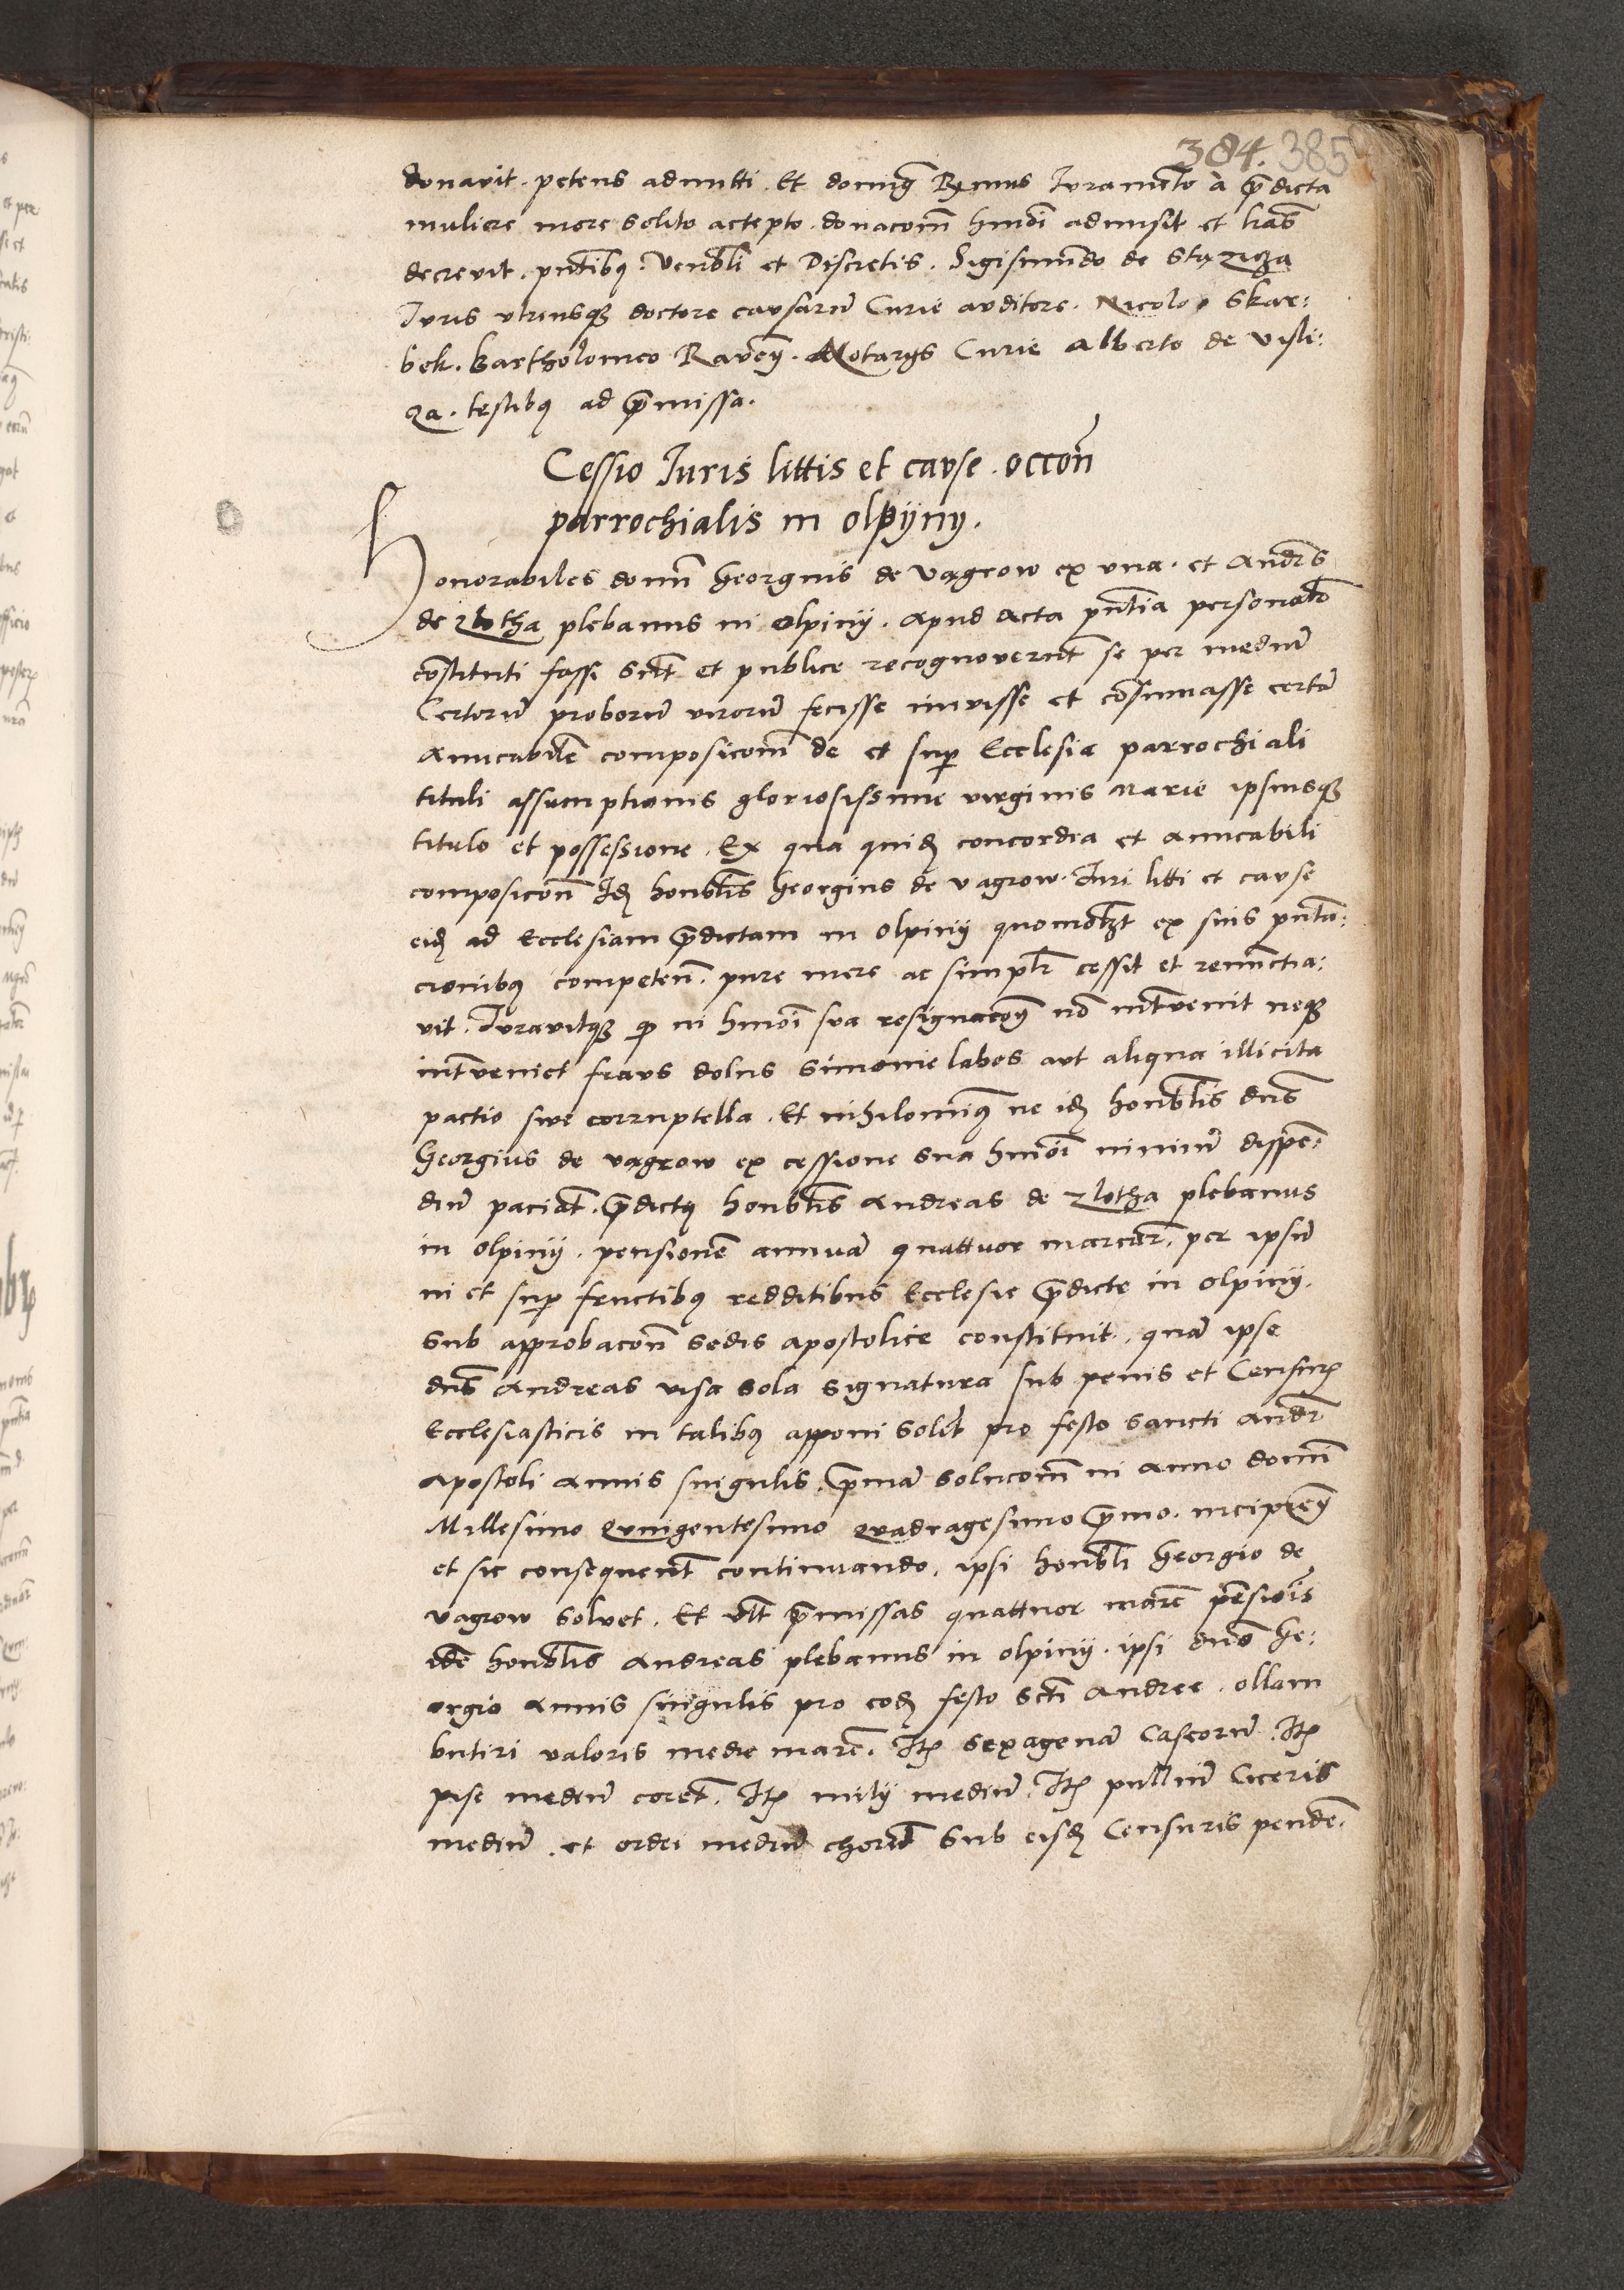 384. 385
donavit . petens admitti . Et doming Rxmus Iuramēto à p̄dicta
muliere more solito accepto . donacōm hmōi admisit et lrās
decrevit . pn̄tibꝰ . Venbli et Discretis . Sigismundo de Stᶎzicza
Iuris vtriusqꝫ doctore causarū Curie auditore . Nicolao Skar:
bek . Bartholomeo Raveņ . Notarys Curie Alberto de visli:
za . testibꝰ ad p̄missa .
Cessio Iuris littis et cavse . occōn
parrochialis in olpyny .
Honorabiles domī Georgius de Vagrow ex vna . et Andrs
de zlotha plebanus in olpiny . Apud Acta pn̄tia personalr
cōstituti fassi sūt et publice recognoverūt se per mediū
Certorū proborū virorū fecisse inivisse et cōsumasse certā
Amicabilē composicōm de et sup Ecclesia parrochiali
tituli assumptionis gloriosissime virginis Marie ipsiusqꝫ
titulo et possessione . Ex qua quidꝫ concordia et amicabili
composicōn Idꝫ honblis Georgius de vagrow . Iuri liti et cavse
eidꝫ ad Ecclesiam p̄dictam in olpiny quomōlzt ex suis pn̄ta:
cionibꝰ competeñ . pure mere ac simplr cessit et renūctia:
vit . Iuravitqꝫ ꝙ in hmōi sua resignacōnꝫ nō intvenit neqꝫ
intveniet fravs dolus simonie labes avt aliqua illicita
pactio sive corruptella . Et nihilominꝰ ne idꝫ honblis dns
Georgius de vagrow ex cessione sua hmōi nimiū dispē:
diū paciat̄ . p̄dictꝰ honblis Andreas de zlotha plebanus
in olpiny . pensionē annuā quattuor marcar̄ . per ipsū
in et sup fructibꝰ redditibus Ecclesie p̄dicte in olpiny .
Sub approbacōn sedis apostolice constituit . quā ipse
dns Andreas visa sola signatura sub penis et Censurꝫ
Ecclesiasticis in talibꝰ apponi solit̄ pro festo sancti Andr̄
Apostoli Annis singulis . p̄mā solucōm in anno domī
Millesimo Quingentesimo quadragesimo p̄mo . incipieņ
et sic consequent̄ continuando . ipsi honbli Georgio de
vagrow solvet . Et vlt̄ p̄missas quattuor marc̄ pensiōis
idē honblis Andreas plebanus in olpiny . ipsi dno Ge:
orgio Annis singulis pro eodꝫ festo scti Andree . ollam
butiri valoris medie marc̄ . Itꝫ sexagenā Caseorū . Itꝫ
pise mediū coret̄ . Itꝫ mily mediū . Itꝫ Ciceris
mediū . et ordei mediū chorū Sub eisdꝫ Censuris penden̄ .